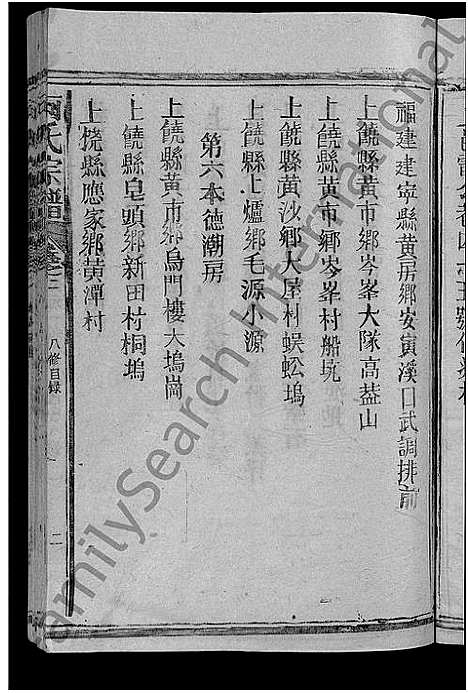 福建建寧縣黃房鄉安寅漢口武調排前
上饒縣黃市鄉岑峯大隊高葢山
上饒縣黃市鄉岑峯村船坑
上饒縣黃沙鄉大屋村蜈蚣塢
上饒縣上爐鄉毛源小源
第六本德潮房
上饒縣黃市鄉烏門樓大塢崗
上饒縣皂頭鄉新田村桐塢
上饒縣應家鄉黃潭村
氏宗譜
八修目録
二
FamilySearch International